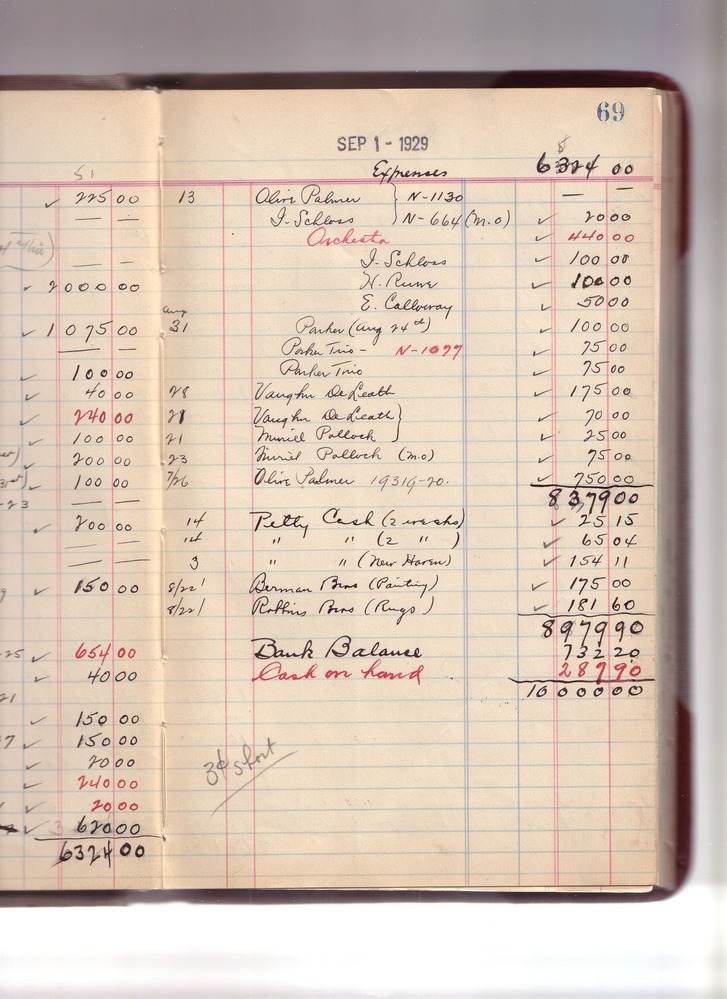 69
SEP 1 - 1929
8
Expenses 6324 00
13 Olive Palmer } N-1130 — —
I. Schloss } N-664 (m.o) ✓ 20 00
Orchestra ✓ 440 00
I. Schloss ✓ 100 00
✓ 100 00
E. Calloway ✓ 50 00
Aug
31 Parker (Aug 24th) ✓ 100 00
Parker Trio - N-1077 ✓ 75 00
Parker Trio ✓ 75 00
28 Vaughn DeLeath ✓ 175 00
21 Vaughn DeLeath } ✓ 70 00
21 Muriel Pollock } ✓ 25 00
23 Muriel Pollock (m.o) ✓ 75 00
7/26 Olive Palmer 19319-20. ✓ 750 00
8379 00
14 Petty Cash (2 weeks) ✓ 25 15
14 " " (2 " ) ✓ 65 04
3 " " (New Haven) ✓ 154 11
8/22 Berman Bros (Painting) ✓ 175 00
8/22 Robbins Bros (Rugs) ✓ 181 60
8979 90
Bank Balance 732 20
Cash on hand 287 90
10 000 00
3¢ short
51
✓ 225 00
— —
— —
✓ 2000 00
✓ 1075 00
— —
✓ 100 00
✓ 40 00
✓ 240 00
✓ 100 00
✓ 200 00
✓ 100 00
-23 — —
✓ 200 00
— —
— —
✓ 150 00
-25 ✓ 654 00
✓ 40 00
21
✓ 150 00
7 ✓ 150 00
✓ 20 00
✓ 240 00
✓ 20 00
✓ 620 00
6324 00